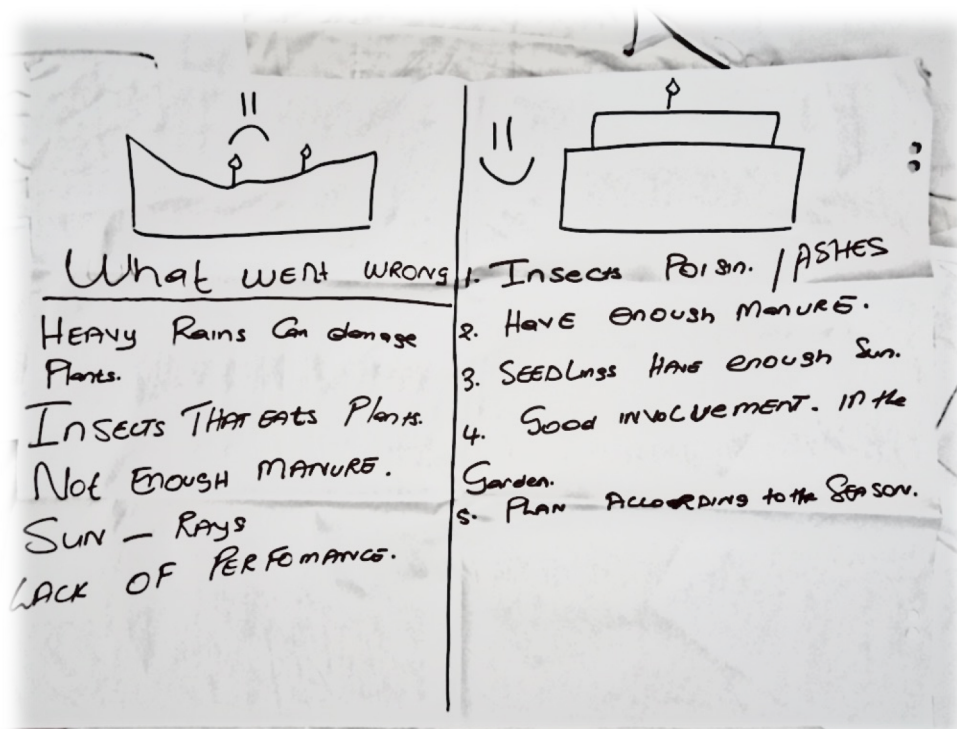 What WENt WRONG
HEAVy Rains Can damage
Plants.
InSECTS THAT EATS Plants.
Not ENOUGH MANURE.
SUN - RAYS
LACK OF PERFOMANCE.
1. Insects Poison. / ASHES
2. HAVE enough MANURE.
3. SEEDLings HAVE enough Sun.
4. Good INVOLVEMENT. In the
Garden.
5. PLAN ACCORDING to the SEASON.